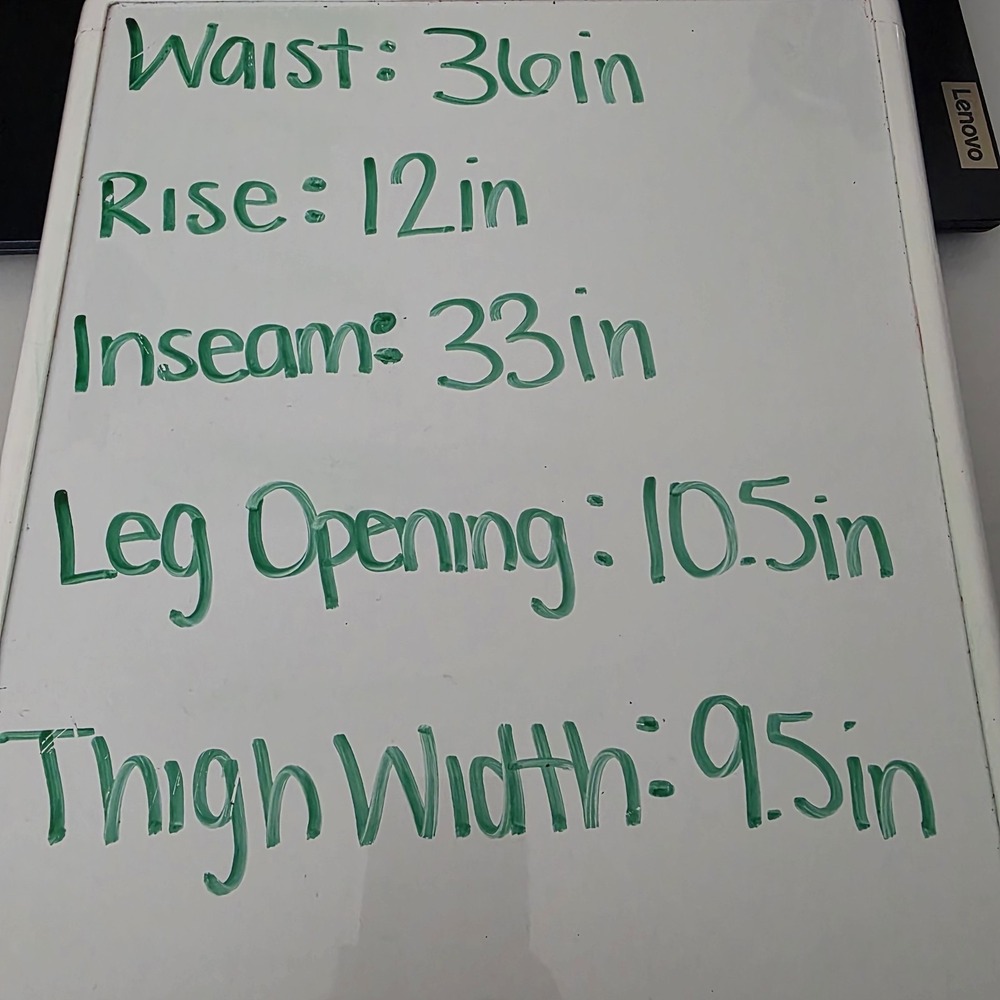 Waist: 36in
Lenovo
Rise: 12in
Inseam: 33in
Leg Opening: 10.5in
Thigh Width: 9.5in